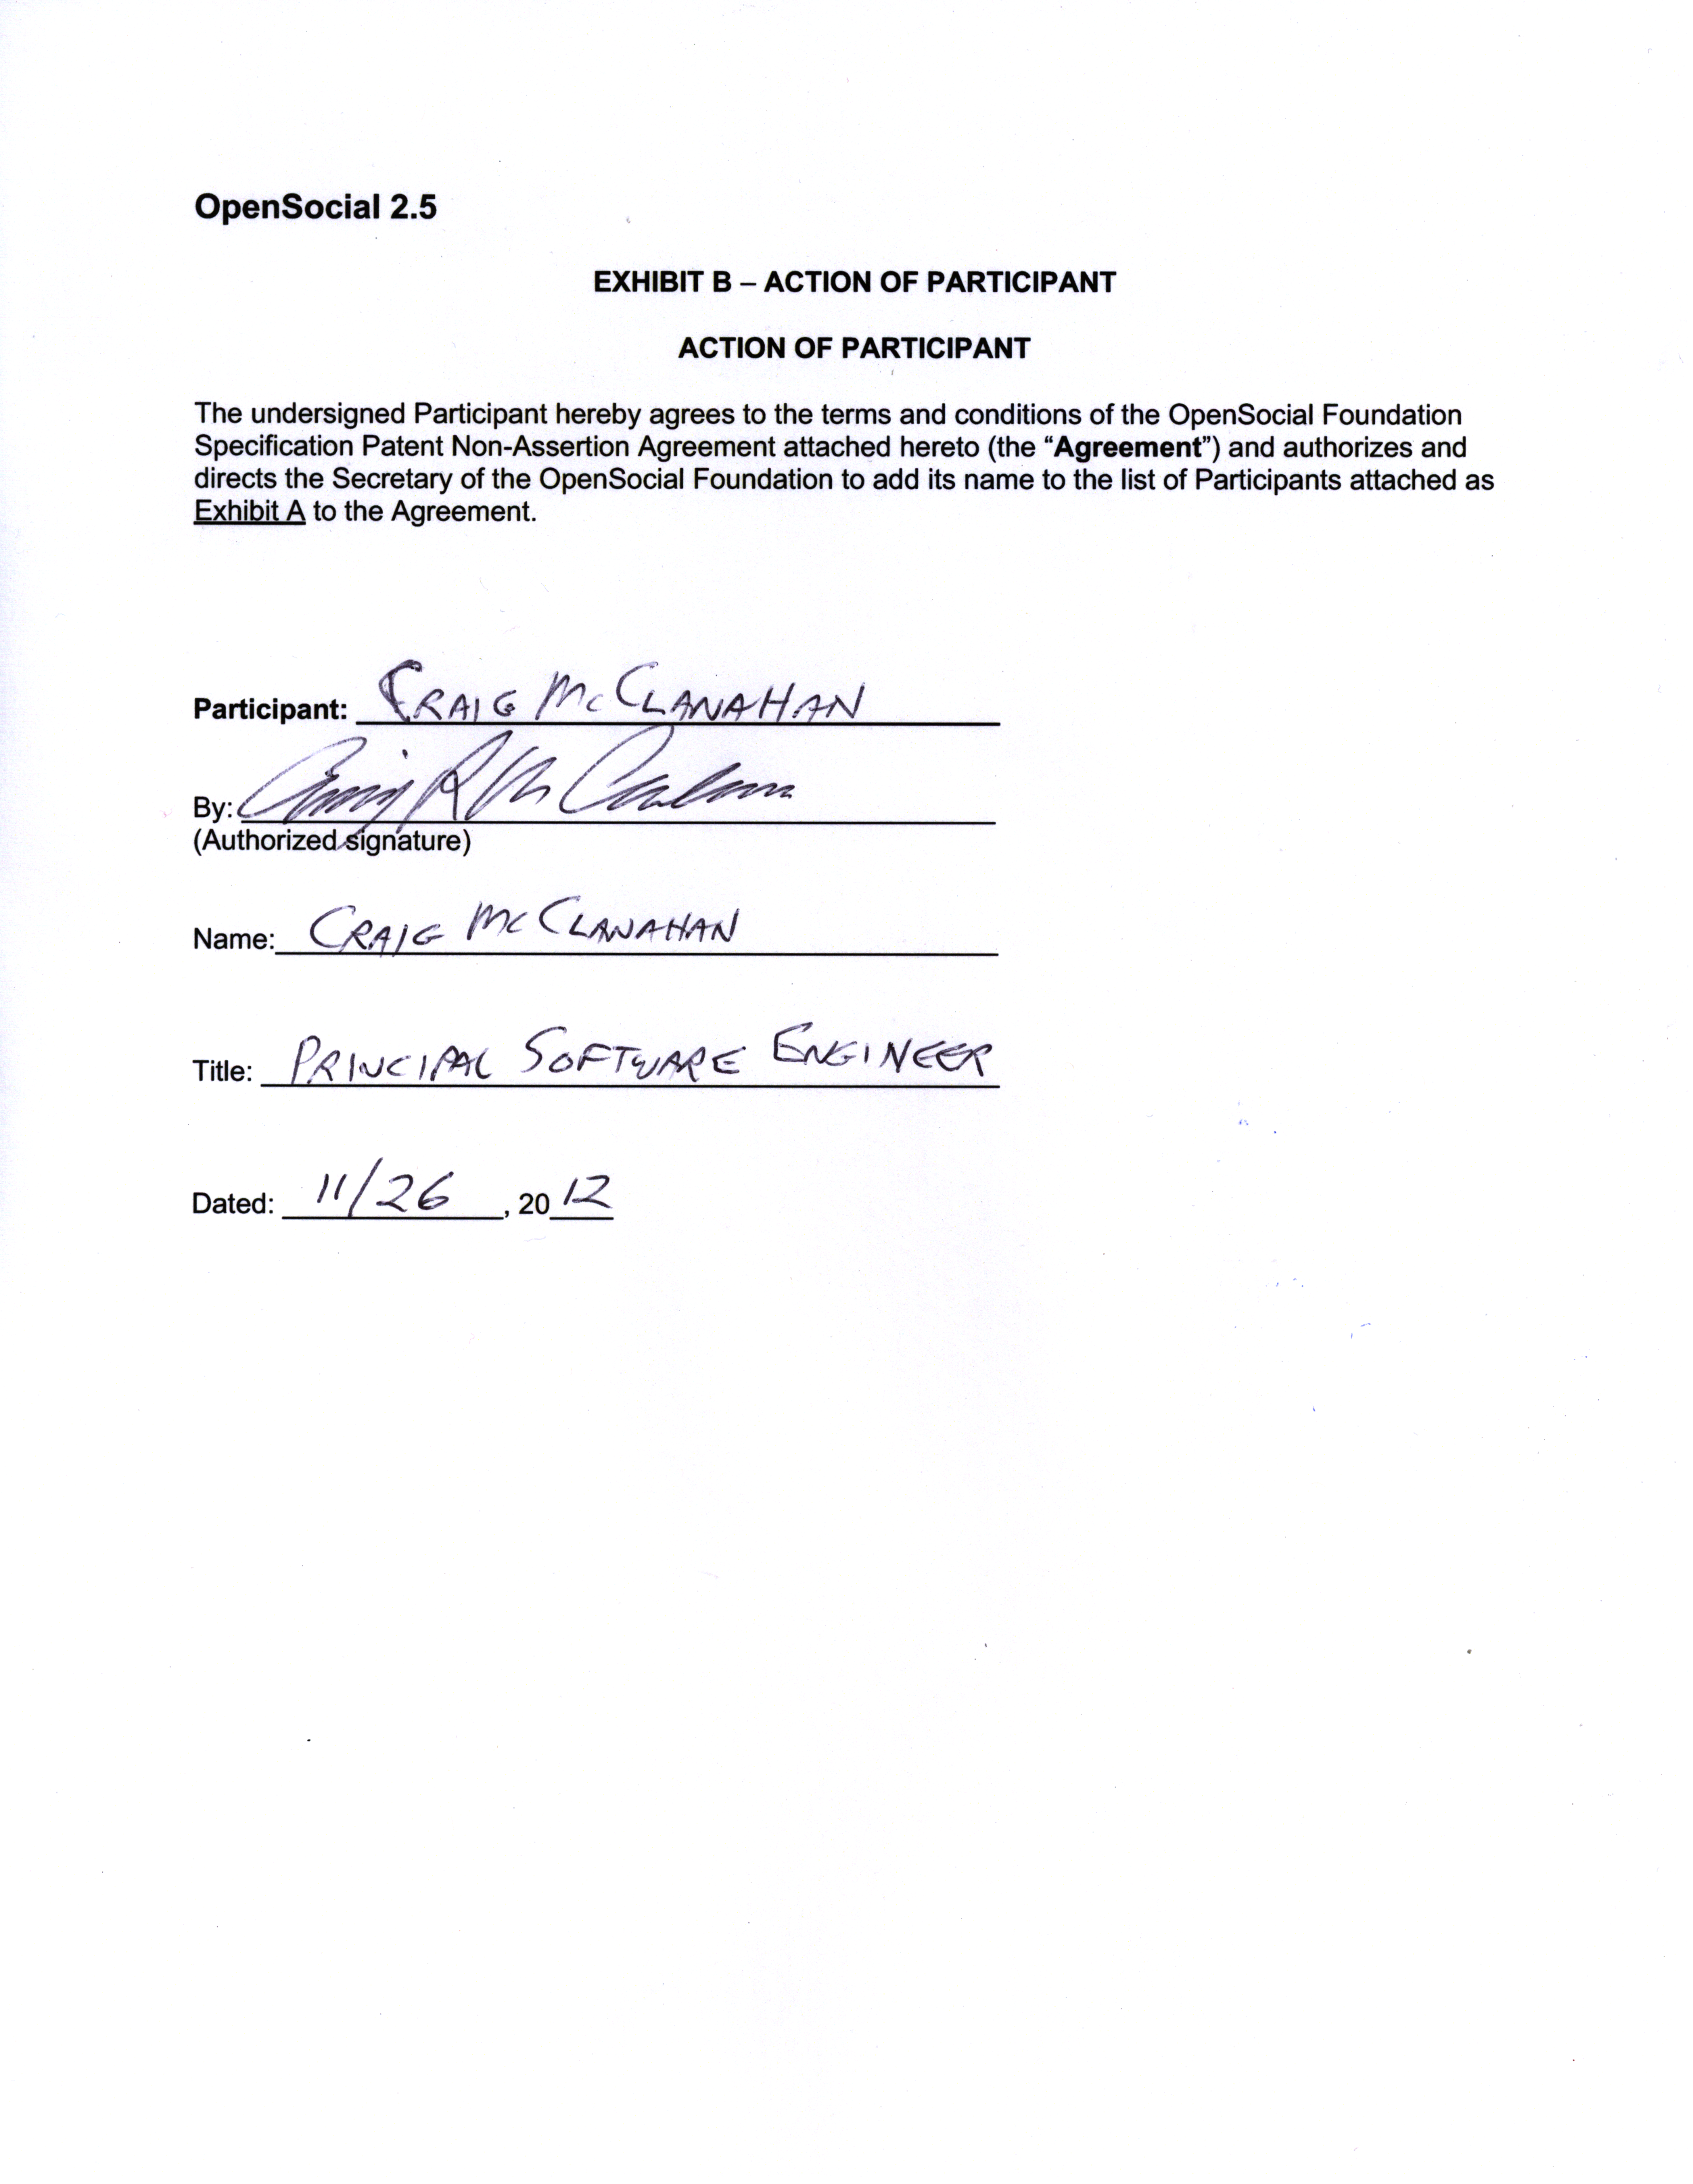 OpenSocial 2.5
EXHIBIT B – ACTION OF PARTICIPANT
ACTION OF PARTICIPANT
The undersigned Participant hereby agrees to the terms and conditions of the OpenSocial Foundation
Specification Patent Non-Assertion Agreement attached hereto (the “Agreement”) and authorizes and
directs the Secretary of the OpenSocial Foundation to add its name to the list of Participants attached as
Exhibit A to the Agreement.
Participant: CRAIG McCLANAHAN
By: Craig R McClanahan
(Authorized signature)
Name: CRAIG McCLANAHAN
Title: PRINCIPAL SOFTWARE ENGINEER
Dated: 11/26, 2012